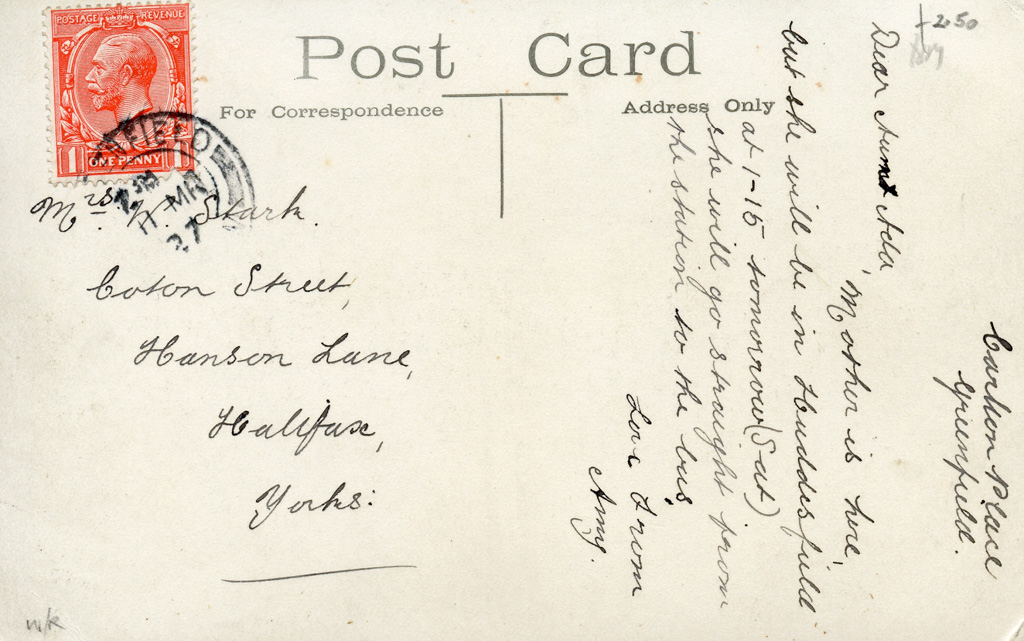 Post Card
For Correspondence
Address Only
POSTAGE REVENUE
1 ONE PENNY 1
NFIELD
11 MR
27
Mrs. H. Stark.
Coton Street,
Hanson Lane,
Halifax,
Yorks:
Place
Greenfield.
Dear Aunt Ada,
Mother is here,
but she will be in Huddersfield
at 1-15 tomorrow (Sat)
she will go straight from
the station to the bus,
Love from
Amy.
2.50